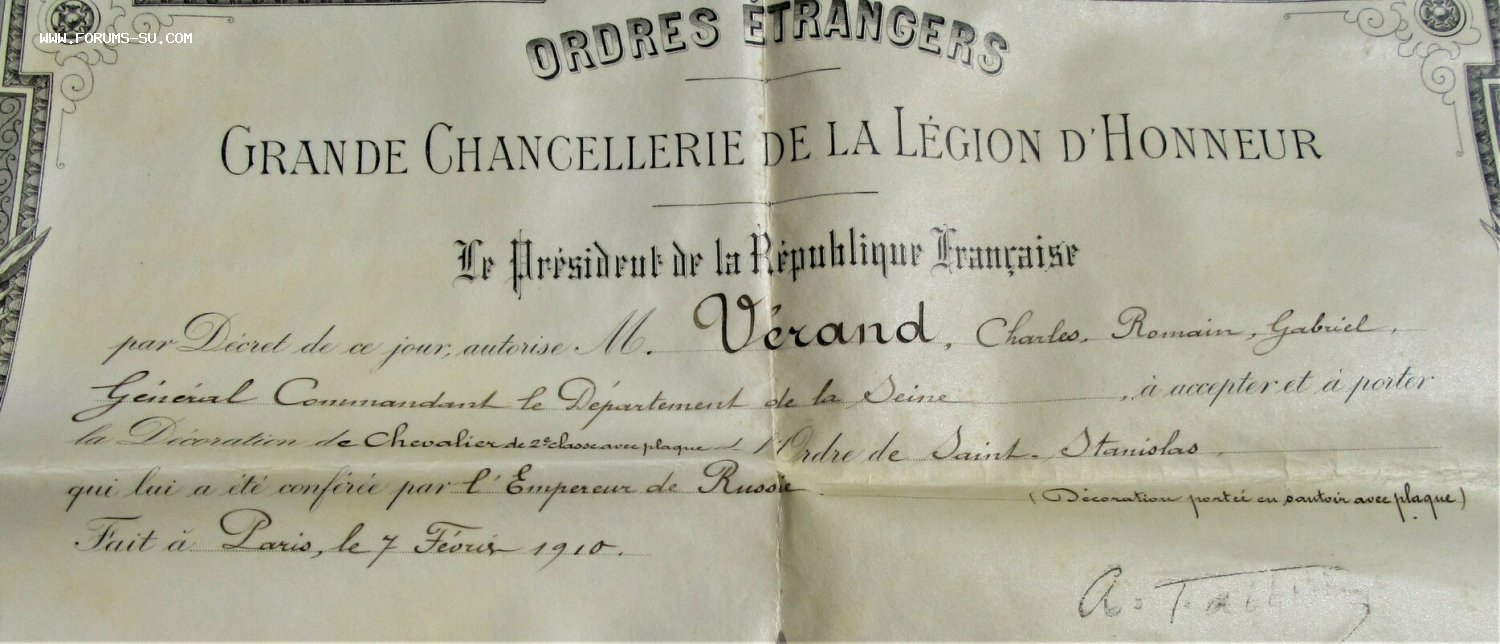 www.forums-su.com
ORDRES ÉTRANGERS
GRANDE CHANCELLERIE DE LA LÉGION D'HONNEUR
Le Président de la République Française
par Décret de ce jour, autorise M. Vérand, Charles, Romain, Gabriel,
Général Commandant le Département de la Seine, à accepter et à porter
la Décoration de Chevalier de 2e classe avec plaque d l'Ordre de Saint-Stanislas,
qui lui a été conférée par l'Empereur de Russie.
(Décoration portée en sautoir avec plaque)
Fait à Paris, le 7 Février 1910.
A.